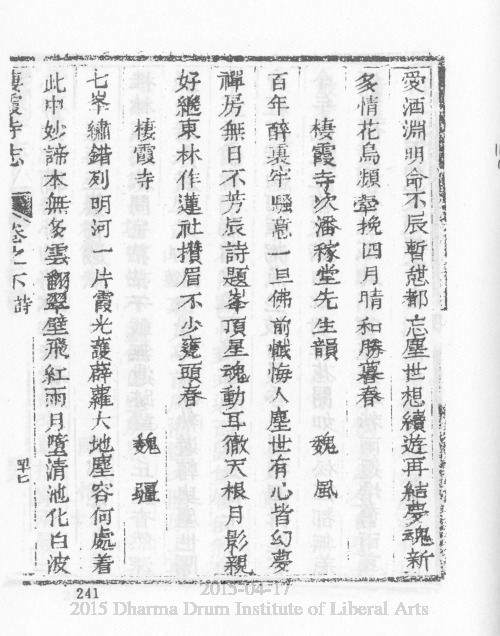 愛酒淵明命不辰暫愆都忘塵世想續遊再結夢魂新
多情花鳥頻牽挽四月晴和勝暮春
棲霞寺次潘稼堂先生韻　魏風
百年醉裏牢騷意一旦佛前懺悔人塵世有心皆幻夢
禪房無日不芳辰詩題峯頂星魂動耳徹天根月影親
好繼東林作蓮社攢眉不少甕頭春
棲霞寺　魏疆
七峯繡錯列明河一片霞光護薜蘿大地塵容何處着
此中妙諦本無多雲翻翠壁飛紅雨月墮清池化白波
棲霞寺志　卷之下詩　罕七
241
2015-04-17
2015 Dharma Drum Institute of Liberal Arts